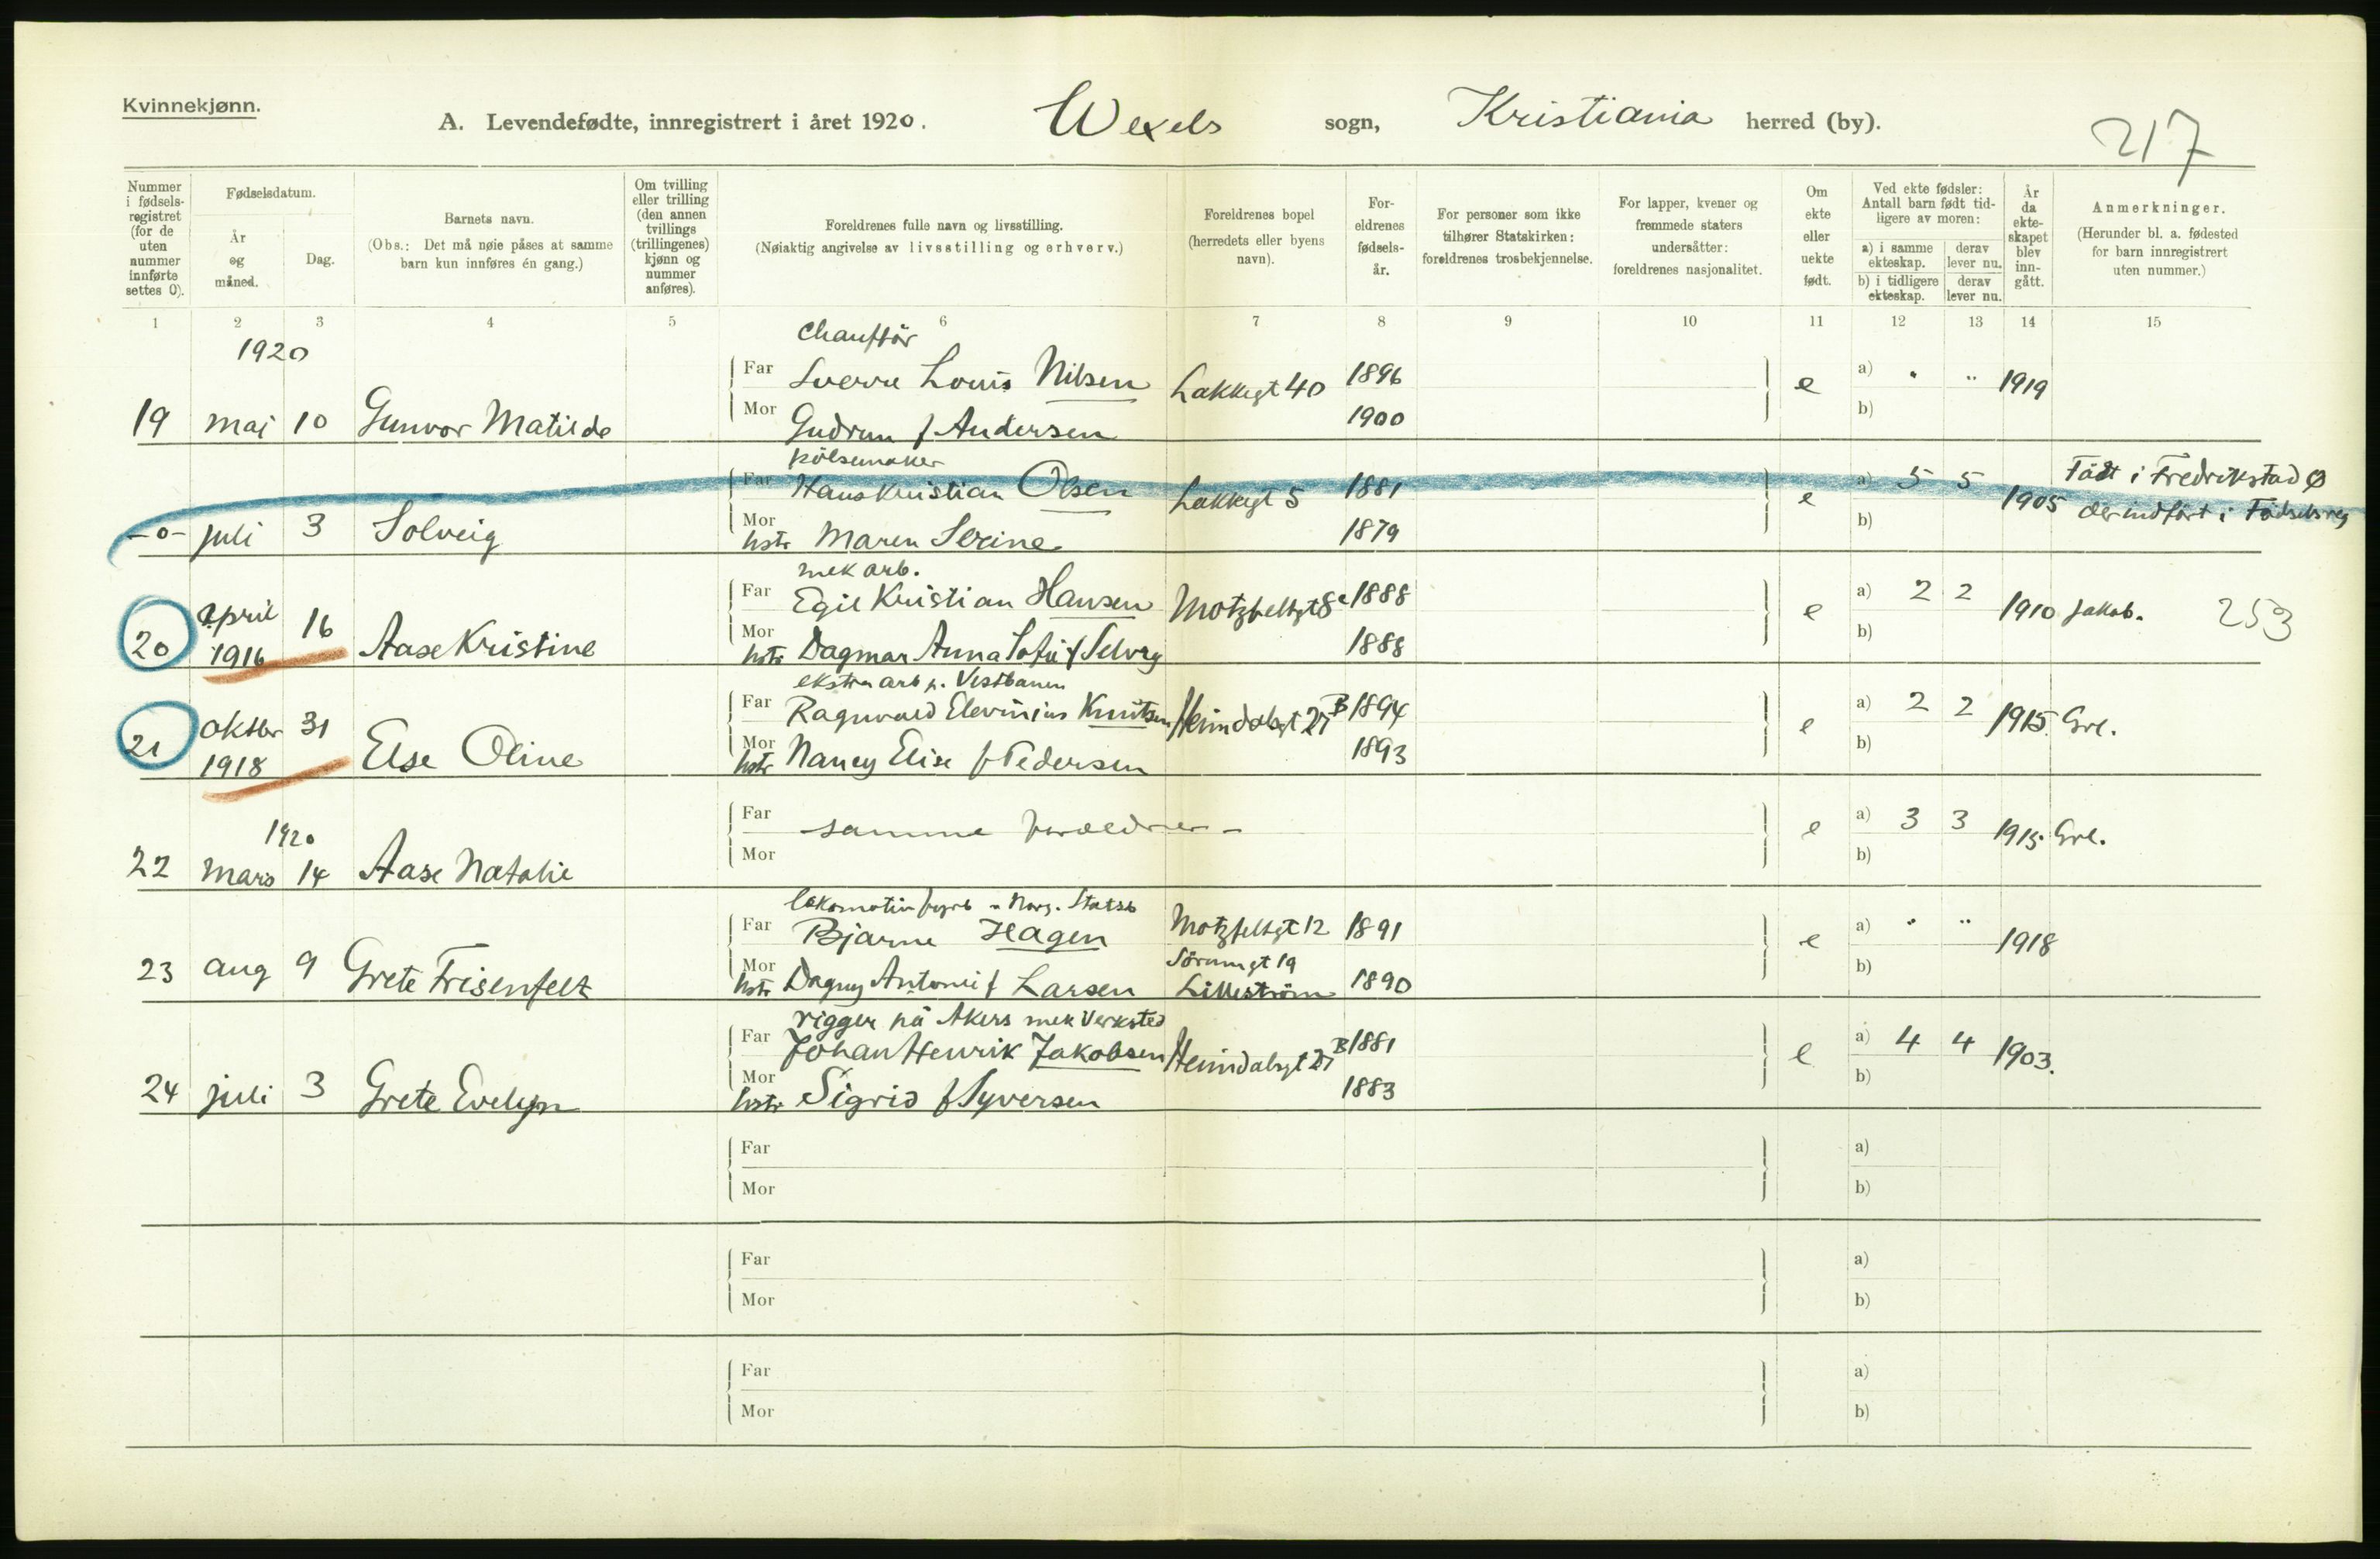 Kvinnekjønn.
A. Levendefødte, innregistrert i året 1920. Wexels sogn, Kristiania herred (by).
217
Nummer i fødselsregistret (for de uten nummer innførte settes 0).
Fødselsdatum.
År og måned.
Dag.
Barnets navn.
(Obs.: Det må nøie påses at samme barn kun innføres én gang.)
Om tvilling eller trilling (den annen tvillings (trillingenes) kjønn og nummer anføres).
Foreldrenes fulle navn og livsstilling.
(Nøiaktig angivelse av livsstilling og erhverv.)
Foreldrenes bopel (herredets eller byens navn).
Foreldrenes fødselsår.
For personer som ikke tilhører Statskirken: foreldrenes trosbekjennelse.
For lapper, kvener og fremmede staters undersåtter: foreldrenes nasjonalitet.
Om ekte eller uekte født.
Ved ekte fødsler: Antall barn født tidligere av moren:
a) i samme ekteskap. derav lever nu.
b) i tidligere ekteskap. derav lever nu.
År da ekteskapet blev inngått.
Anmerkninger.
(Herunder bl. a. fødested for barn innregistrert uten nummer.)
1 2 3 4 5 6 7 8 9 10 11 12 13 14 15
1920
Chaufför
Far Sverre Louis Nilsen Lakkegt 40 1896 e a) " " 1919
19 mai 10 Gunvor Matilde
Mor Gudrun f Andersen 1900 b)
pölsemaker
Far Hans Kristian Olsen Lakkegt 5 1881 e a) 5 5 1905 Födt i Fredrikstad Ø
der indfört i Födselsreg
-0- juli 3 Solveig
Mor hstr Maren Serine 1879 b)
mek arb.
Far Egil Kristian Hansen Motzfeldtgt 8c 1888 e a) 2 2 1910 Jakob. 253
20 april 1916 16 Aase Kristine
Mor hstr Dagmar Anna Sofie f Selvig 1888 b)
ekstra arb p. Vestbanen
Far Ragnvald Elevinius Knutsen Heimdalsgt 27 B 1894 e a) 2 2 1915. Grl.
21 oktbr 1918 31 Else Oline
Mor hstr Nancy Elise f Pedersen 1893 b)
1920
Far samme foreldrer - e a) 3 3 1915. Grl.
22 mars 14 Aase Natalie
Mor b)
Far Bjarne Hagen Motzfeltgt 12 1891 e a) " " 1918
23 aug 9 Grete Frisenfelt
Mor hstr Dagny Antonie f Larsen Sörumgt 19 Lilleström 1890 b)
rigger på Akers mek Verksted
Far Johan Henrik Jakobsen Heimdalsgt 27 B 1881 e a) 4 4 1903.
24 juli 3 Grete Evelyn
Mor hstr Sigrid f Syversen 1883 b)
Far a)
Mor b)
Far a)
Mor b)
Far a)
Mor b)